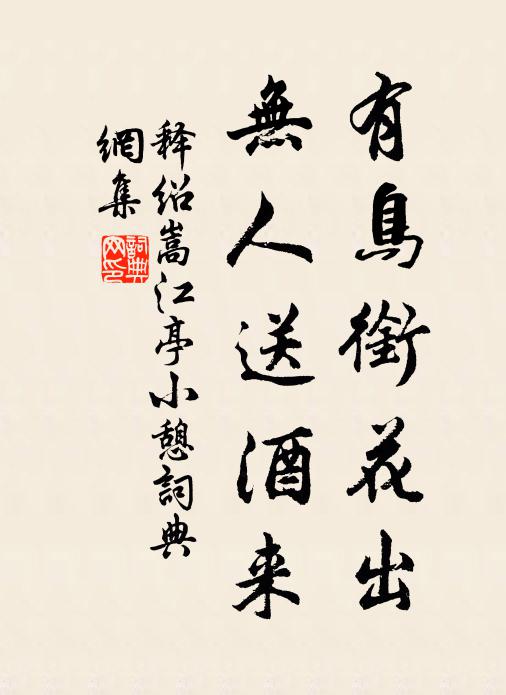 有鳥銜花出
無人送酒来
释绍嵩江亭小憩詞典
網集
詞典网印